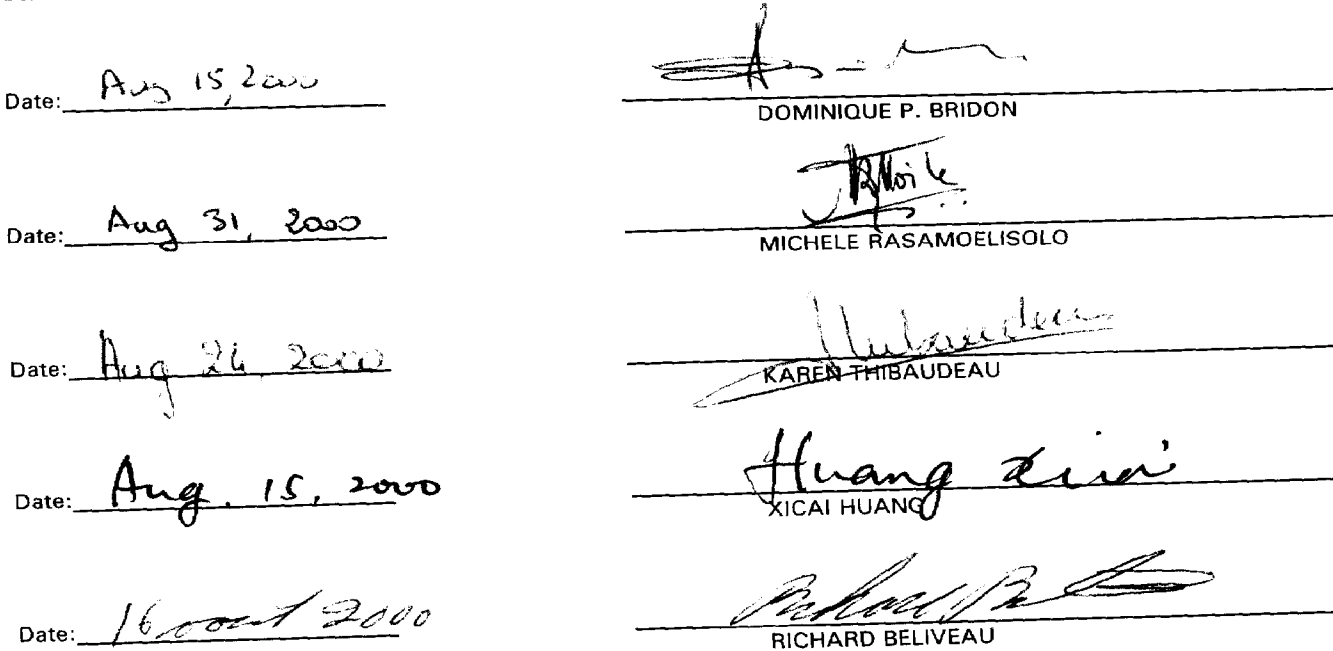 Date: Aug 15, 2000
DOMINIQUE P. BRIDON
Date: Aug 31, 2000
MICHELE RASAMOELISOLO
Date: Aug 24, 2000
Thibaudeau
KAREN THIBAUDEAU
Date: Aug. 15, 2000
Huang Xicai
XICAI HUANG
Date: 16 aout 2000
Richard
RICHARD BELIVEAU